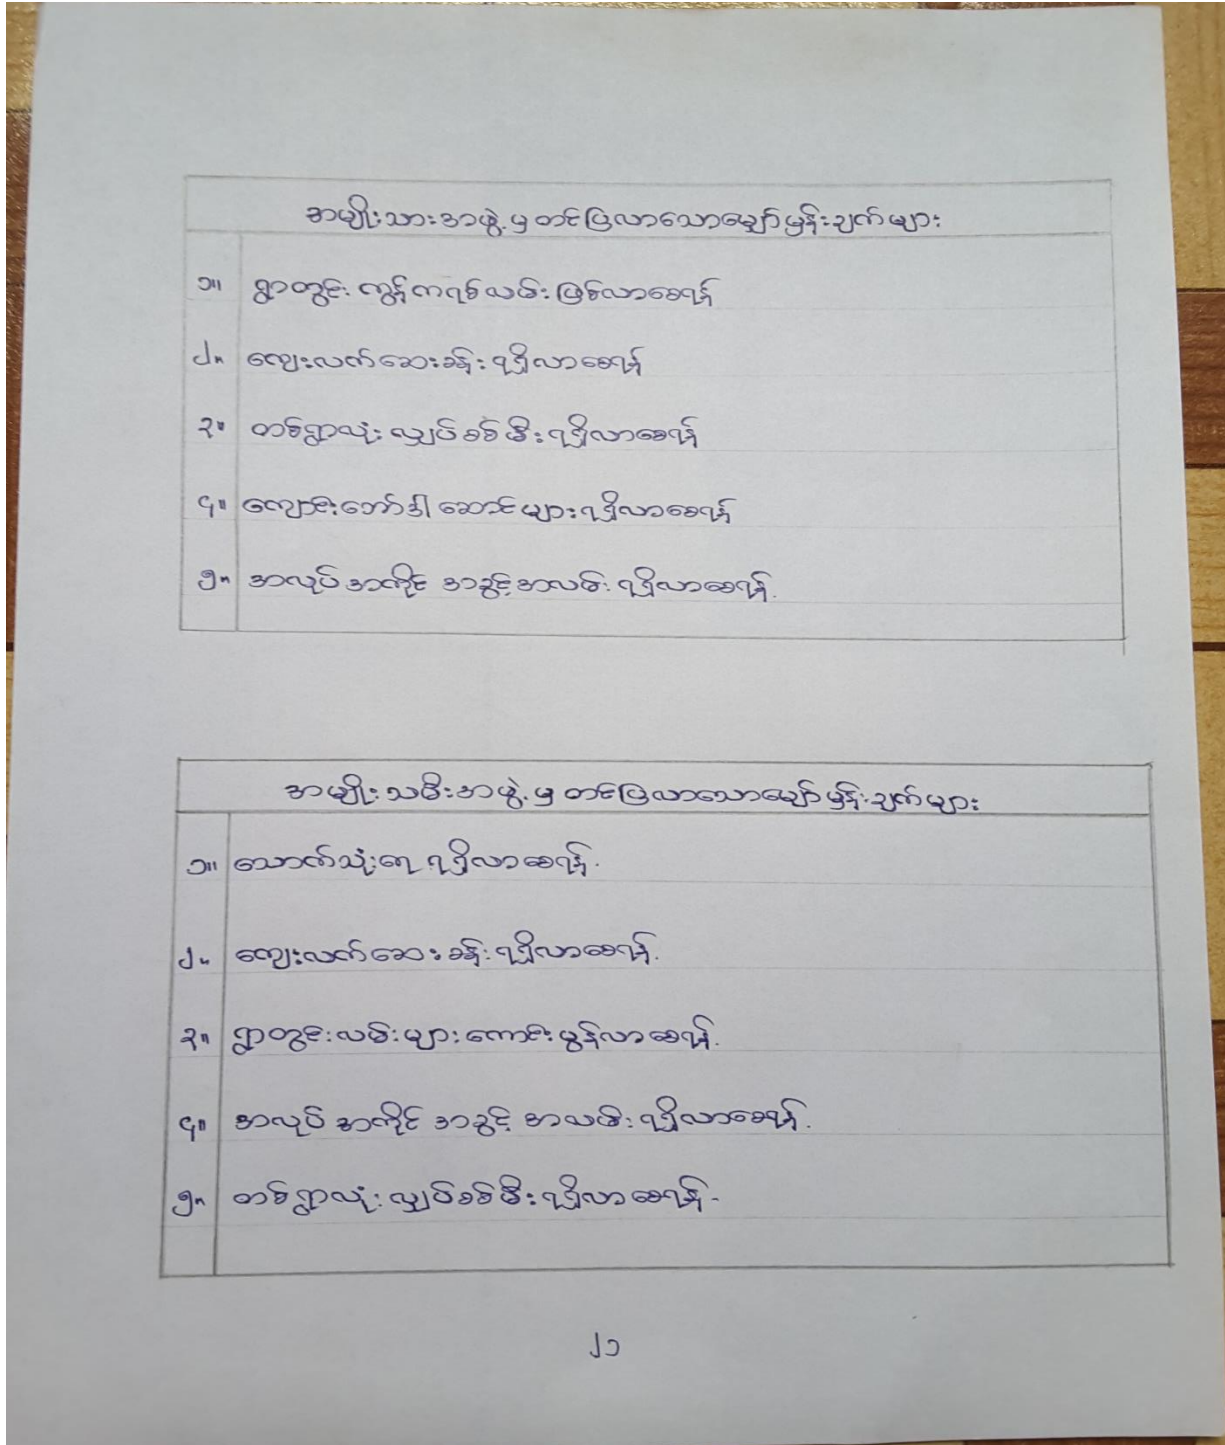 အမျိုးသားအဖွဲ့မှ တင်ပြလာသောမျှော်မှန်းချက်များ
၁။ ရွာတွင်း ကွန်ကရစ်လမ်း ဖြစ်လာစေရန်
၂။ ကျေးလက်ဆေးခန်း ရရှိလာစေရန်
၃။ တစ်ရွာလုံး လျှပ်စစ်မီး ရရှိလာစေရန်
၄။ ကျောင်းဘော်ဒါ ဆောင်များ ရရှိလာစေရန်
၅။ အလုပ် အကိုင် အခွင့် အလမ်း ရရှိလာစေရန်.
အမျိုးသမီးအဖွဲ့မှ တင်ပြလာသောမျှော်မှန်းချက်များ
၁။ သောက်သုံးရေ ရရှိလာစေရန်.
၂။ ကျေးလက်ဆေးခန်း ရရှိလာစေရန်.
၃။ ရွာတွင်းလမ်းများ ကောင်းမွန်လာစေရန်.
၄။ အလုပ် အကိုင် အခွင့် အလမ်း ရရှိလာစေရန်.
၅။ တစ်ရွာလုံး လျှပ်စစ်မီး ရရှိလာစေရန်-
၂၁